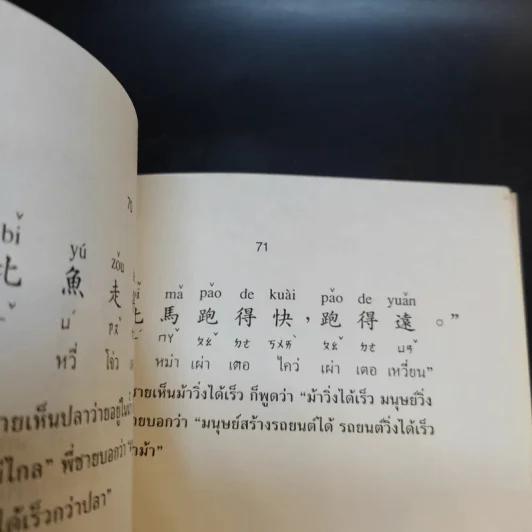 70
bǐ yú zǒu
比 魚 走
ㄩˊ ㄗㄡˇ
หวี่ โจ่ว
ายเห็นปลาว่ายอยู่ในน้ำ
ไกล" พี่ชายบอกว่า
ได้เร็วกว่าปลา"
71
bǐ mǎ pǎo de kuài pǎo de yuǎn
比 馬 跑 得 快，跑 得 遠。"
ㄇㄚˇ ㄆㄠˇ ㄉㄜ ㄎㄨㄞˋ ㄆㄠˇ ㄉㄜ ㄩㄢˇ
หม่า เผ่า เตอ ไคว่ เผ่า เตอ เหวี่ยน"
ชายเห็นม้าวิ่งได้เร็ว ก็พูดว่า "ม้าวิ่งได้เร็ว มนุษย์วิ่ง
ายบอกว่า "มนุษย์สร้างรถยนต์ได้ รถยนต์วิ่งได้เร็ว
ม้า"